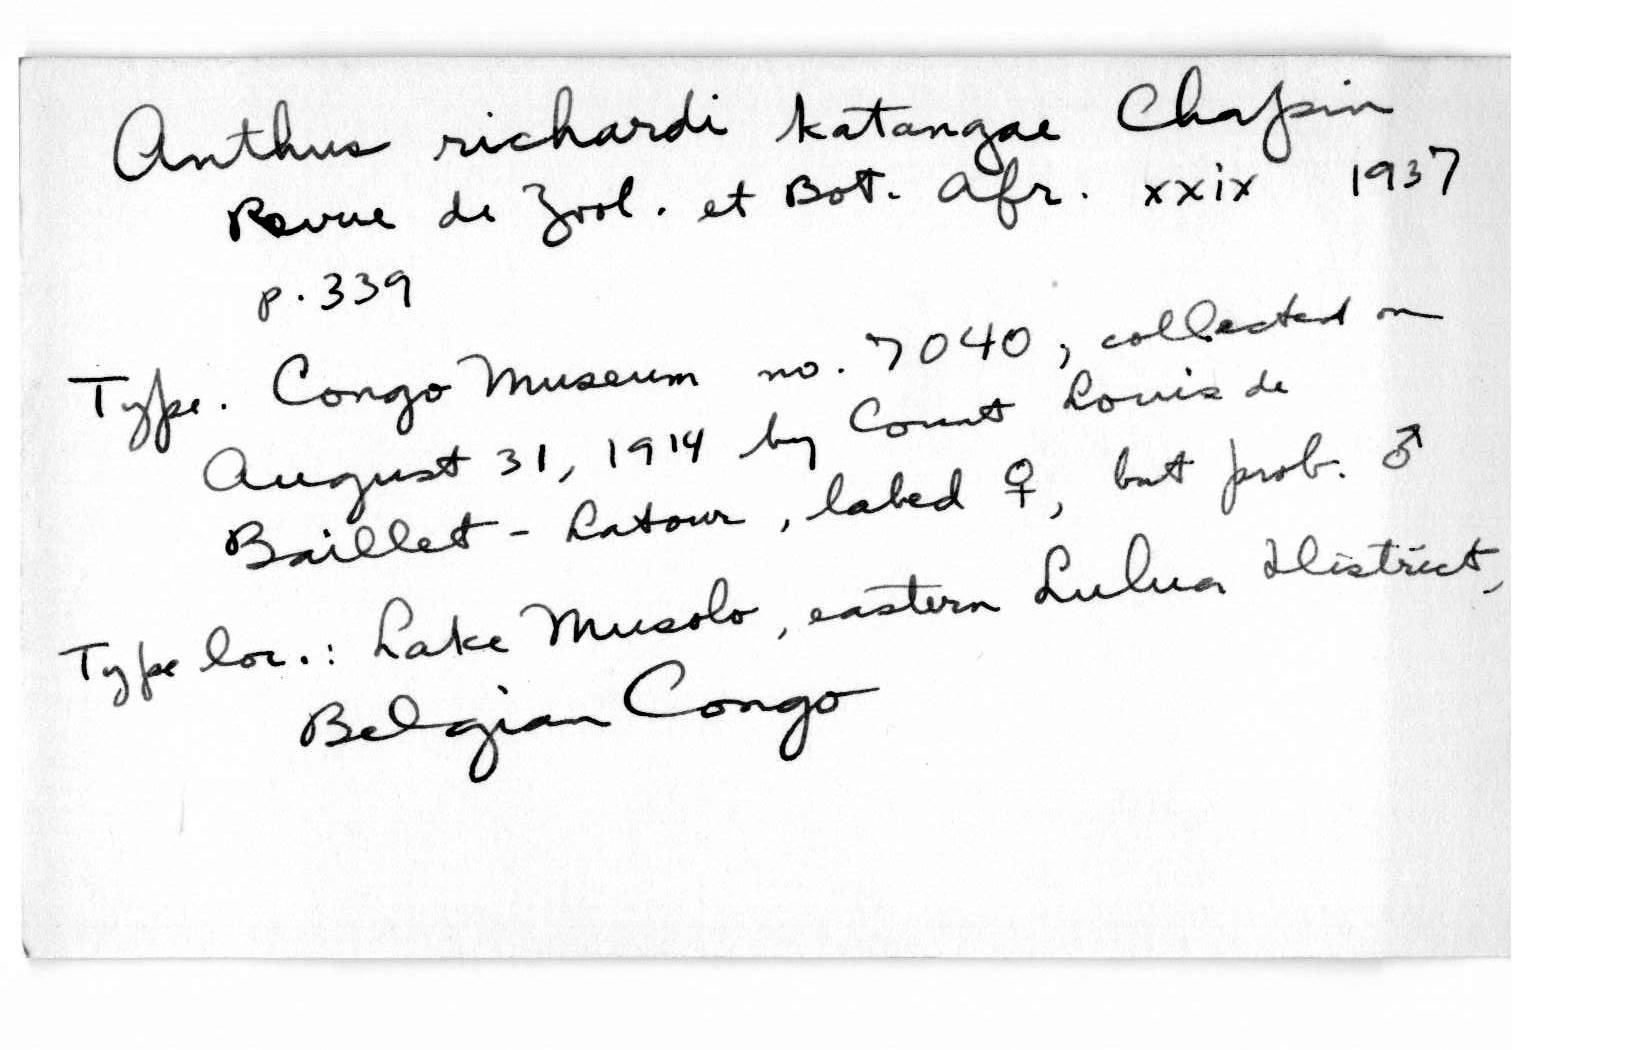 Anthus richardi katangae Chapin
Revue de Zool. et Bot. Afr. xxix 1937
p. 339
Type. Congo Museum no. 7040, collected on
August 31, 1914 by Count Louis de
Baillet-Latour, labed ♀, but prob. ♂
Type loc.: Lake Musolo, eastern Lulua District,
Belgian Congo